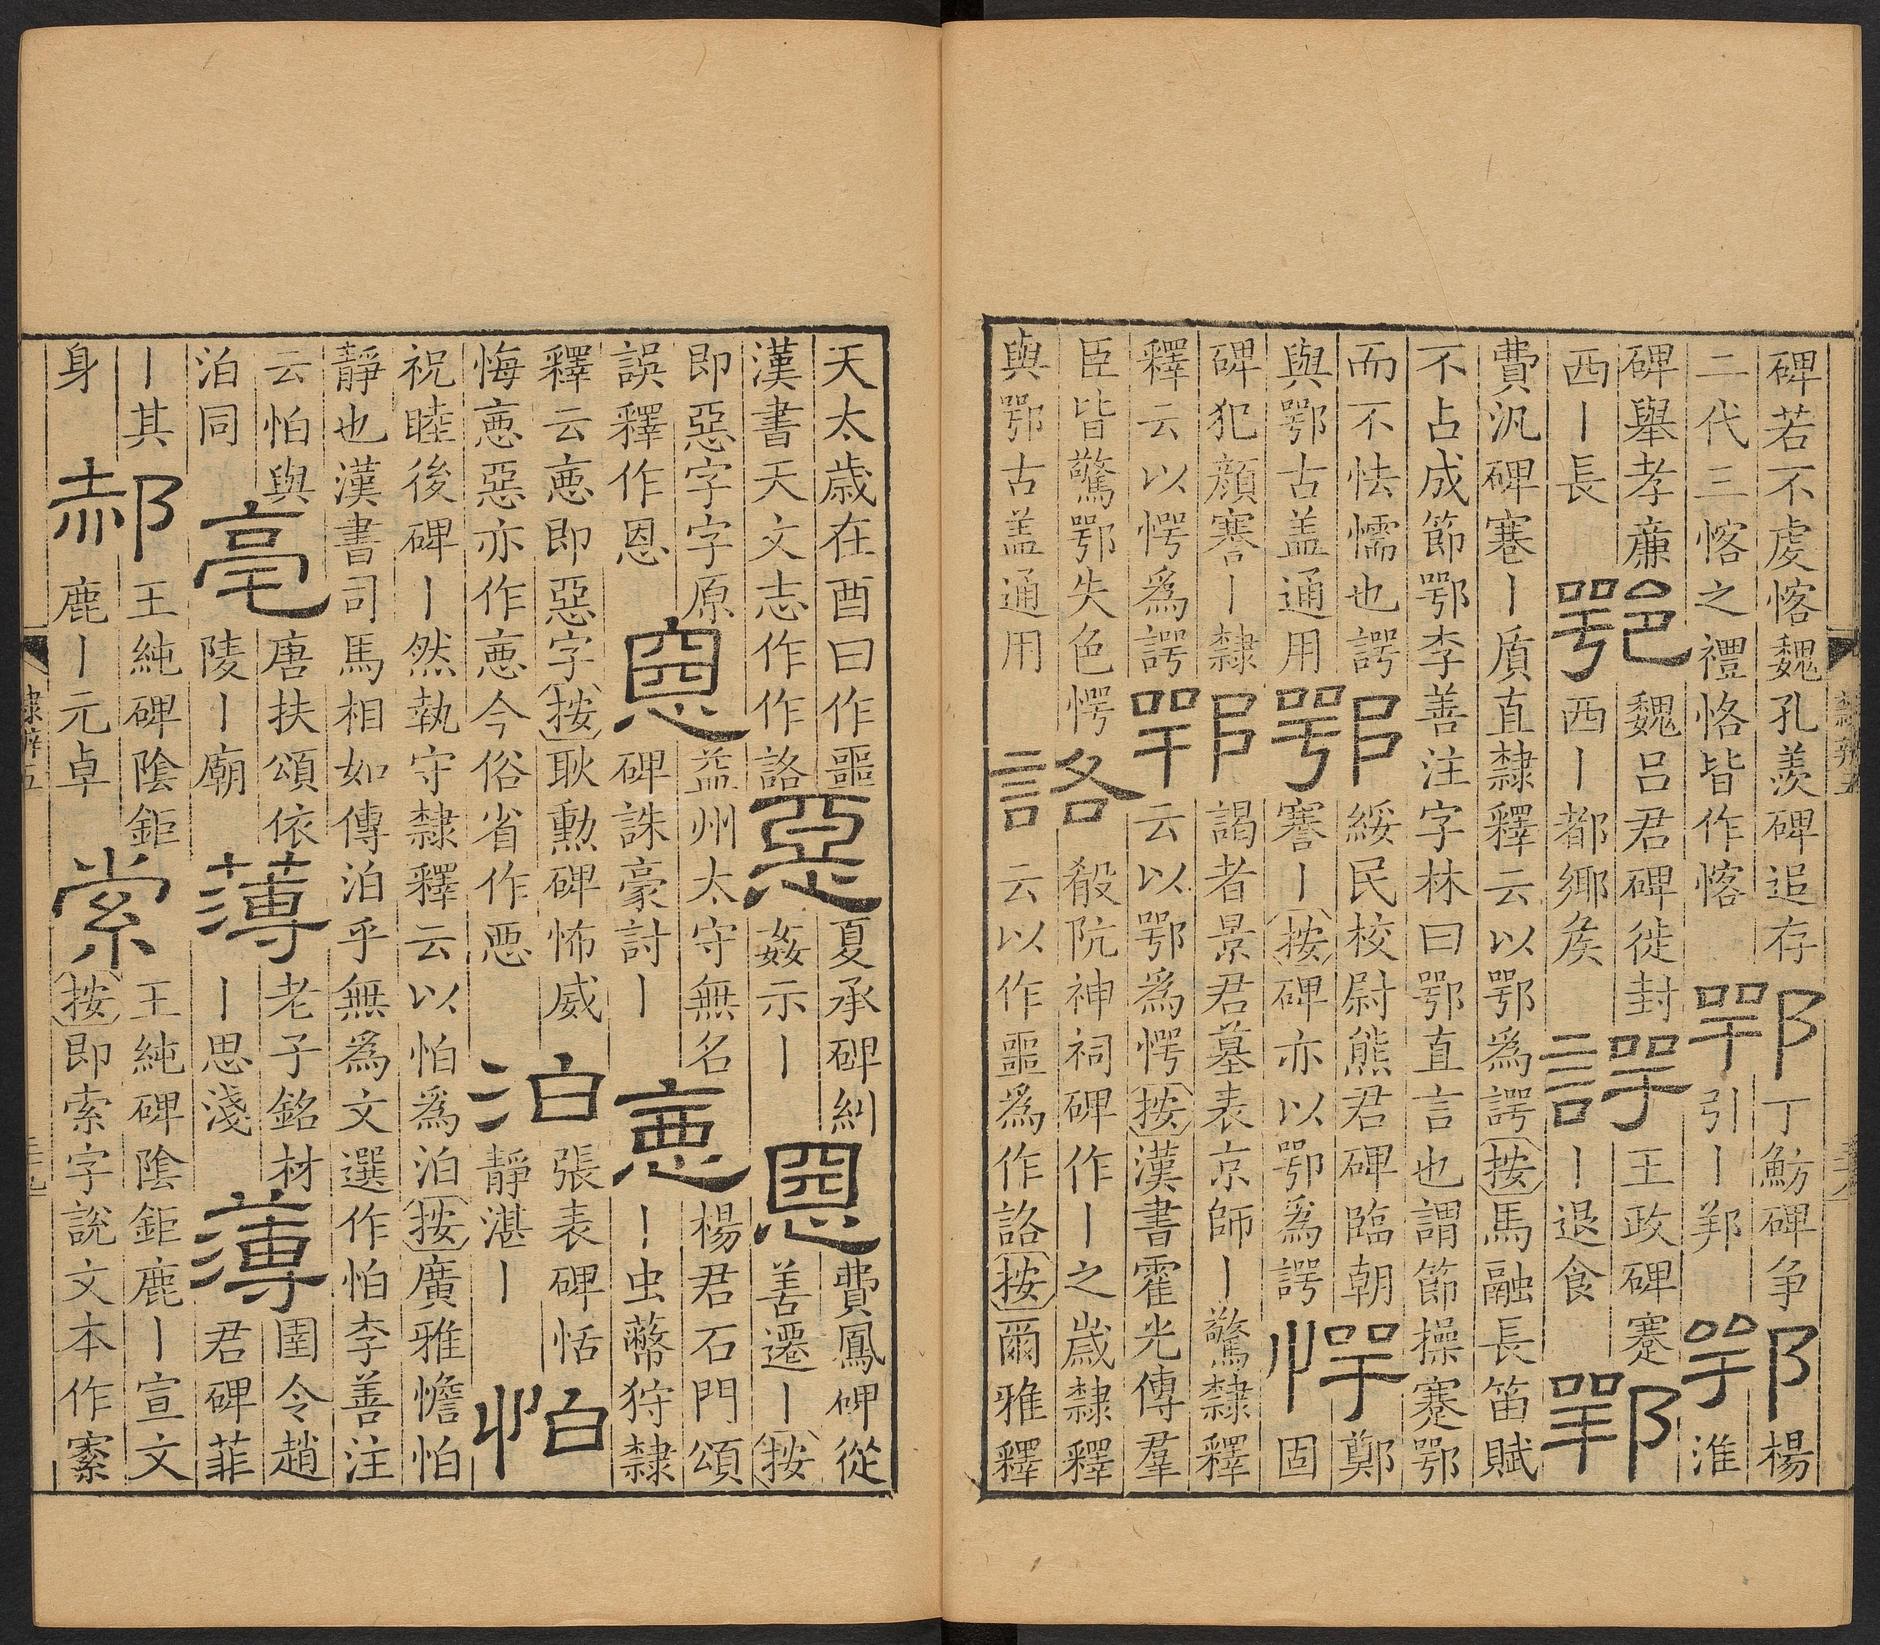 碑若不虔愘魏孔羨碑追存
二代三愘之禮恪皆作愘
鄂
丁魴碑争
引丨鄈
鄂
楊
淮
碑舉孝亷
西丨長
鄂
魏呂君碑徙封
西丨都鄉矦
諤
王政碑蹇
丨退食
鄂
費汎碑蹇丨質直隸釋云以鄂爲諤按馬融長笛賦
不占成節鄂李善注字林曰鄂直言也謂節操蹇鄂
而不怯懦也諤
與鄂古盖通用
鄂
綏民校尉熊君碑臨朝
謇丨按碑亦以鄂爲諤
愕
鄭
固
碑犯顔謇丨隸
釋云以愕爲諤
鄂
謁者景君墓表京師丨驚隸釋
云以鄂爲愕按漢書霍光傳羣
臣皆驚鄂失色愕
與鄂古盖通用
詻
殽阬神祠碑作丨之歲隸釋
云以作噩爲作詻按爾雅釋
天太歳在酉曰作噩
漢書天文志作作詻
惡
夏承碑糾
姦示丨
惡
費鳳碑從
善遷丨按
即惡字字原
誤釋作恩
惡
益州太守無名
碑誅豪討丨
悪
楊君石門頌
丨虫蔽狩隸
釋云悪即惡字按耿勳碑怖威
悔悪惡亦作悪今俗省作惡
泊
張表碑恬
靜湛丨
怕
祝睦後碑丨然執守隸釋云以怕爲泊按廣雅憺怕
靜也漢書司馬相如傳泊乎無爲文選作怕李善注
云怕與
泊同
亳
唐扶頌依
陵丨廟
薄
老子銘材
丨思淺
薄
圉令趙
君碑菲
丨其
身
郝
王純碑隂鉅
鹿丨元卓
索
王純碑隂鉅鹿丨宣文
按即索字說文本作㩙
隸辨五